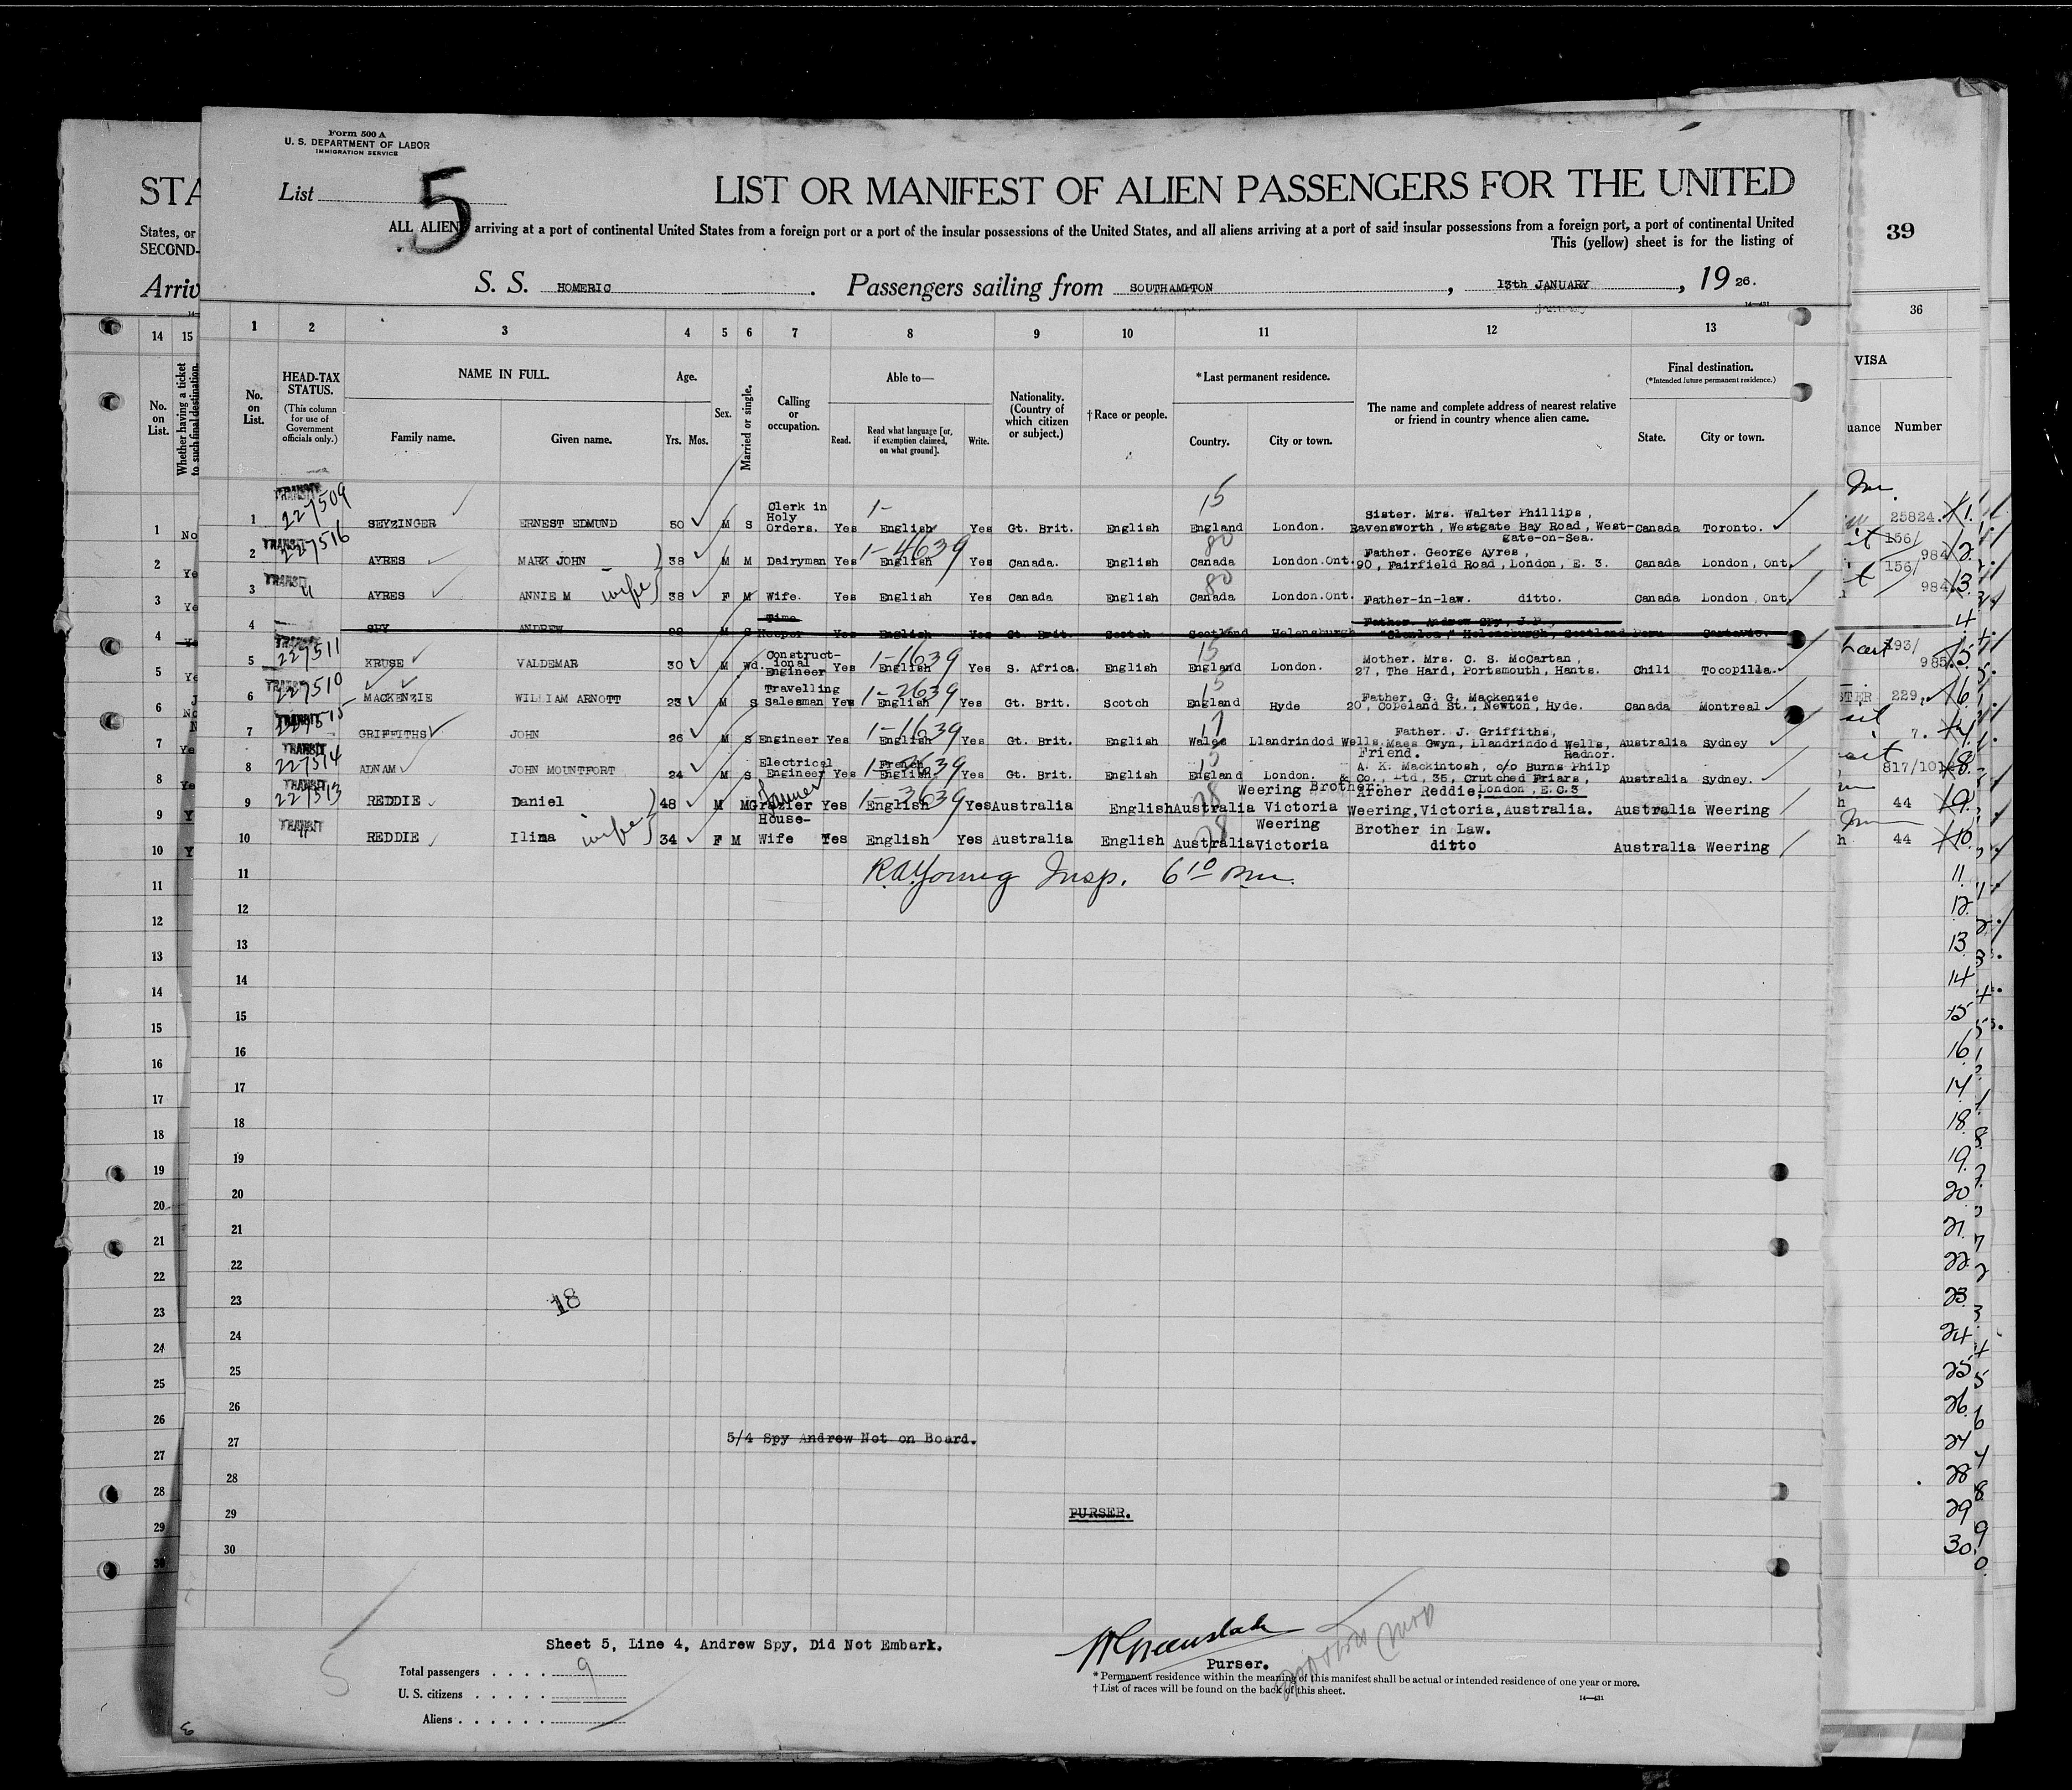 Form 500 A
U. S. DEPARTMENT OF LABOR
IMMIGRATION SERVICE
List 5
LIST OR MANIFEST OF ALIEN PASSENGERS FOR THE UNITED
ALL ALIENS arriving at a port of continental United States from a foreign port or a port of the insular possessions of the United States, and all aliens arriving at a port of said insular possessions from a foreign port, a port of continental United
This (yellow) sheet is for the listing of
S. S. HOMERIC. Passengers sailing from SOUTHAMPTON, 13th JANUARY, 1926.
STA
States, or
SECOND-
Arriv
39
1 2 3 4 5 6 7 8 9 10 11 12 13
14 15
36
VISA
uance Number
No. on List.
Whether having a ticket to such final destination.
No. on List.
HEAD-TAX STATUS.
(This column for use of Government officials only.)
NAME IN FULL.
Family name. Given name.
Age.
Yrs. Mos.
Sex.
Married or single.
Calling or occupation.
Able to—
Read. Read what language [or, if exemption claimed, on what ground]. Write.
Nationality. (Country of which citizen or subject.)
†Race or people.
*Last permanent residence.
Country. City or town.
The name and complete address of nearest relative or friend in country whence alien came.
Final destination.
(*Intended future permanent residence.)
State. City or town.
1 TRANSIT 227509 SEYZINGER ERNEST EDMUND 50 M S Clerk in Holy Orders. Yes 1- English Yes Gt. Brit. English 15 England London. Sister. Mrs. Walter Phillips, Ravensworth, Westgate Bay Road, West-gate-on-Sea. Canada Toronto.
2 TRANSIT 227516 AYRES MARK JOHN 38 M M Dairyman Yes 1-4639 English Yes Canada. English 80 Canada London.Ont. Father. George Ayres, 90, Fairfield Road, London, E. 3. Canada London, Ont.
3 TRANSIT " AYRES ANNIE M wife 38 F M Wife. Yes English Yes Canada English 80 Canada London.Ont. Father-in-law. ditto. Canada London, Ont.
4 SPY ANDREW M S Time Keeper Yes English Yes Gt. Brit. Scotch Scotland Helensburgh Father. Andrew Spy, J.P., Helensburgh, Scotland Peru
5 TRANSIT 227511 KRUSE VALDEMAR 30 M Wd. Construct-ional Engineer Yes 1-1639 English Yes S. Africa. English 15 England London. Mother. Mrs. C. S. McCartan, 27, The Hard, Portsmouth, Hants. Chili Tocopilla.
6 TRANSIT 227510 MACKENZIE WILLIAM ARNOTT 23 M S Travelling Salesman Yes 1-2639 English Yes Gt. Brit. Scotch 15 England Hyde Father. G. G. Mackenzie 20, Copeland St., Newton, Hyde. Canada Montreal
7 TRANSIT 227515 GRIFFITHS JOHN 26 M S Engineer Yes 1-1639 English Yes Gt. Brit. English 17 Wales Llandrindod Wells Father. J. Griffiths, Maes Gwyn, Llandrindod Wells, Radnor. Australia Sydney
8 TRANSIT 227514 ADNAM JOHN MOUNTFORT 24 M S Electrical Engineer Yes French English Yes Gt. Brit. English 15 England London. Friend. A. K. Mackintosh, c/o Burns Philp & Co., Ltd, 35, Crutched Friars, London, E.C.3 Australia Sydney.
9 TRANSIT 227513 REDDIE Daniel 48 M M Grazier farmer Yes 1-3639 English Yes Australia English 28 Australia Weering Victoria Brother. Archer Reddie. Weering, Victoria, Australia. Australia Weering
10 TRANSIT " REDDIE Ilima wife 34 F M House-Wife Yes English Yes Australia English 28 Australia Weering Victoria Brother in Law. ditto Australia Weering
11
R A Young Insp. 6 10 pm.
12
13
14
15
16
17
18
19
20
21
22
23
18
24
25
26
27
5/4 Spy Andrew Not on Board.
28
29
PURSER.
30
25824.
156/ 984
156/ 984
193/ 985
229
7.
817/101
44
44
Sheet 5, Line 4, Andrew Spy, Did Not Embark.
Total passengers . . . . 9
U. S. citizens . . . . .
Aliens . . . . . .
Purser.
* Permanent residence within the meaning of this manifest shall be actual or intended residence of one year or more.
† List of races will be found on the back of this sheet.
14—431